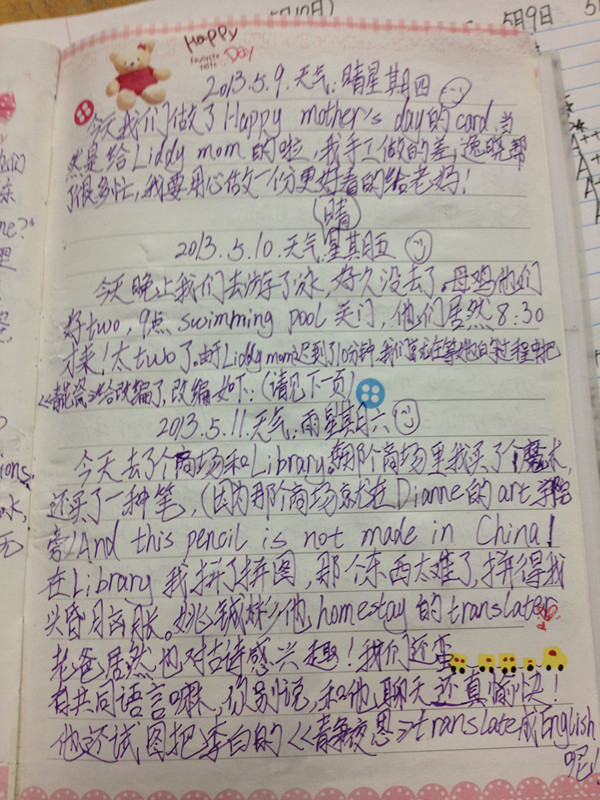 5月9日
Happy
Day
2013.5.9.天气:晴星期四
今天我们做了Happy mother's day的card,当
然是给Liddy mom的啦,我手工做的差,逸晓帮
了很多忙,我要用心做一份更好看的给老妈!
晴
2013.5.10.天气:星期五
今天晚上我们去游了泳,好久没去了。母鸡他们
好two,9点 swimming pool 关门,他们居然8:30
才来!太two了。由于Liddy mom迟到了10分钟,我们就在等她的过程中把
《青花瓷》给改编了,改编如下:(请见下一页)
2013.5.11.天气:雨星期六
今天去了个商场和Library,那个商场里我买了个魔术,
还买了一种笔,(因为那个商场就在Dianne的art学院
旁)And this pencil is not made in China!
在Library我拼了拼图,那个东西太难了,拼得我
头昏月肉胀。姚铖彬他homestay的translate
老爸居然也对古诗感兴趣!我们还蛮
有共同语言嘛,你别说,和他聊天还真愉快!
他还试图把李白的《静夜思》translate成English
呢!